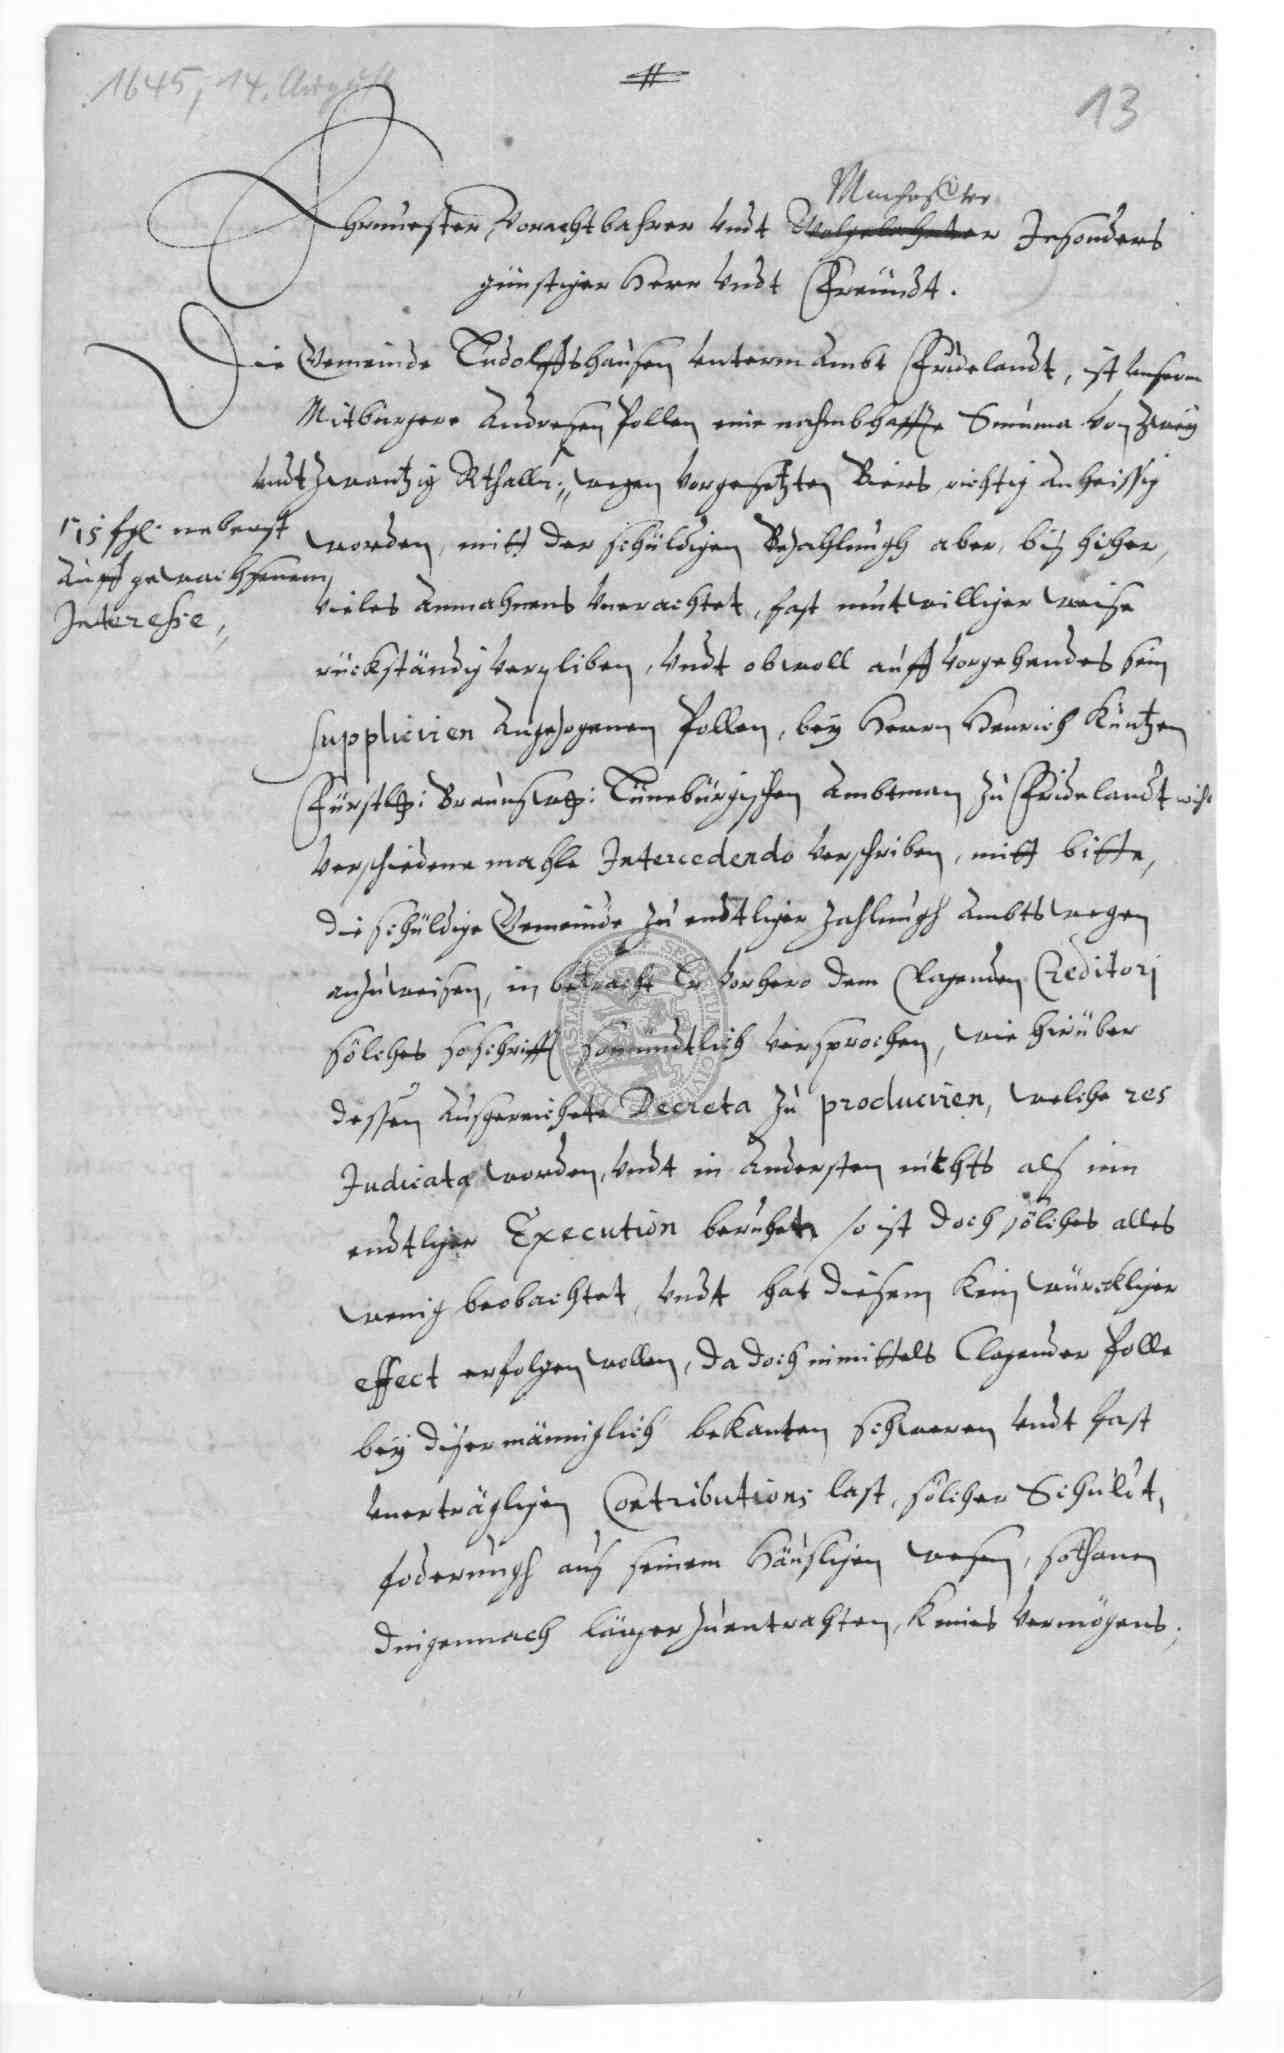 1645, 14. August
13
Ehrnvester, Vorachtbahrer undt Wolgelahrter Insonders
günstiger Herr undt Freündt.
Die Gemeinde Ludolffshausen unterm Ambt Fridelandt, ist unserm
Mitbürgere Andresen Pollen eine nahmbhaffte Summa von zwey
undt zwantzig Rthalln: wegen vorgesetzten Biers richtig anheissig
15 ßgl. nebenst
auffgewachssenem
Interesse,
worden, mitt der schüldigen Bezahlungh aber, biß hiher,
vieles Anmahnens unerachtet, fast mutwilliger weise
rückständig verpliben, undt obwoll auff vorgehendes sein
suppliciren Angezogenem Pollen, bey Herrn Henrich Küntzen
Fürstl: Braunschw: Lüneburgischen Ambtman zu Fridelandt wihr
verschiedene mahle Intercedendo verschriben, mitt bitte,
die schüldige Gemeinde zu endtliger zahlungh Ambts wegen
anzuweisen, in betracht Er vorhero dem Clagenden Creditori
sölches so schrifft so mündtlich versprochen, wie hirüber
dessen Ausgereichete Decreta zu produciren, welche res
Judicata worden, undt in Andersten nichts alß inn
endtliger Execution beruhet, so ist doch sölches alles
wenig beobachtet, undt hat diesem kein würckliger
effect erfolgen wollen, da doch inmittels Clagender Polle
bey diser männiglich bekanten schweren undt fast
unerträgligen Contributions last, sölcher Schuldt,
foderungh auß seinem Häusligen wesen, sothanen
dingennach länger zuentrahten, keines vermögens,